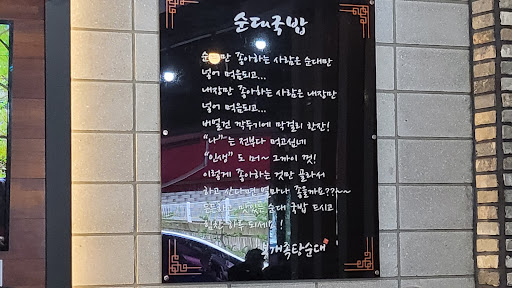 순대국밥
순대만 좋아하는 사람은 순대만
넣어 먹음되고...
내장만 좋아하는 사람은 내장만
넣어 먹음되고...
버얼건 깍두기에 막걸리 한잔!
"나"는 전부다 먹고싶네
"인생" 도 머~ 그까이 껏!
이렇게 좋아하는 것만 골라서
하고 산다면 얼마나 좋을까요??~~
맛있는 순대 국밥 드시고
힘찬 하루 되세요!
개족탕순대